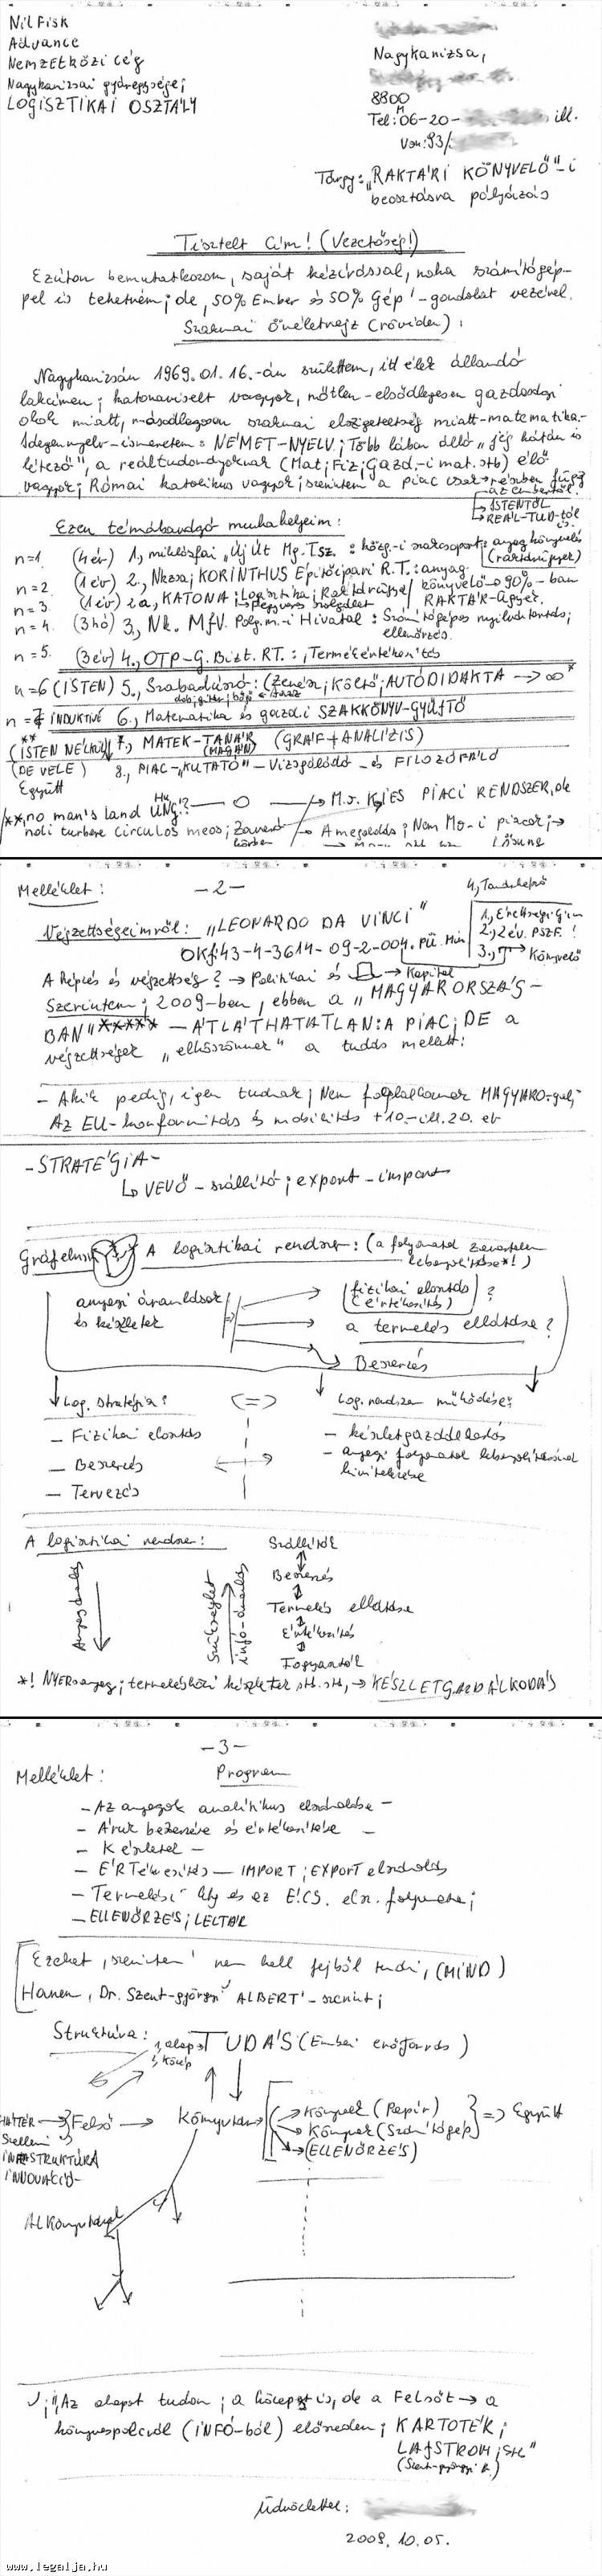 Nilfisk
Advance
Nemzetközi Cég
Nagykanizsai gyáregysége;
LOGISZTIKAI OSZTÁLY
Nagykanizsa,
8800
Tel: 06-20- ill.
Von: 93/
Tárgy: "RAKTÁRI KÖNYVELŐ"-i
beosztásra pályázás
Tisztelt Cím! (Vezetőség!)
Ezúton bemutatkozom, saját kézírással, noha számítógép-
pel is tehetném; de, 50% Ember és 50% Gép'-gondolat vezérel.
Szakmai önéletrajz (röviden):
Nagykanizsán 1969.01.16.-án születtem, itt élek állandó
lakcímen; katonaviselt vagyok, nőtlen-elsődlegesen gazdasági
okok miatt, másodlagosan szakmai elszigeteltség miatt-matematika.-
Idegennyelv-ismeretem: NÉMET-NYELV; Több lábon álló "jég hátán is
létező", a reáltudományoknak (Mat; Fiz; Gazd.-i mat. stb) élő
vagyok; Római katolikus vagyok; szerintem a piac csak részben függ
az embertől!
ISTENTŐL
REÁL-TUD-tól
is
Ezen témábavágó munkahelyeim:
n=1. (4év) 1., miklósfai "Új Út Mg. Tsz.: közg-i szakcsoport: anyagkönyvelő
(raktárügyek)
n=2. (1év) 2., Nkzsa; KORINTHUS Építőipari R.T.: anyag
könyvelő → 90%-ban
n=3 (1év) 2a, KATONA: Logisztika; Raktárügyek
RAKTÁR-ügyek.
→ Fegyveres szolgálat
n=4. (3hó) 3, Nk. MJV. Polg.m-i Hivatal: Számítógépes nyilvántartás;
ellenőrzés.
n=5. (3év) 4., OTP-G. Bizt. RT.: ; Termékértékesítés
n=6 (ISTEN) 5., Szabadúszó: (Zenész; Költő; AUTODIDAKTA → ∞ *
n=7 INDUKTÍVE 6., Matematika és gazd.i SZAKKÖNYV-GYŰJTŐ
**
(ISTEN NÉLKÜL) 7., MATEK-TANÁR (GRÁF + ANALÍZIS)
(MAGÁN)
(DE VELE) 8., PIAC-"KUTATÓ"-Vizsgálódó-és FILOZOFÁLÓ
Együtt
**, no man's land
noli turbare circulos meos;
PIACI RENDSZER, de
A megoldás; Nem Mo-i piacok;→
Melléklet: -2-
4., Tanulmányi
Végzettségeimről: "LEONARDO DA VINCI"
OKJ: 43-4-3614-09-2-004. Pü. Min
1, Érettségi Gim
2, 2 év. PSZF. !
3., → Könyvelő
A képzés és végzettség? → Politikai és → Kapital
Szerintem; 2009-ben, ebben a "MAGYARORSZÁG-
BAN" ***** - ÁTLÁTHATATLAN: A PIAC; DE a
végzettségek "elköszönnek" a tudás mellett:
- Akik pedig, igen tudnak; Nem foglalkoznak
Az EU-konformitás és mobilitás +10.-ill. 20. év
-STRATÉGIA-
↳ VEVŐ - szállító; export - import
Gráfelmélet
A logisztikai rendszer: (a folyamatok zavartalan
lebonyolítása*!)
anyagi áramlások
és készletek
(fizikai elosztás
(értékesítés) ?
a termelés ellátása?
Beszerzés
Log. stratégia: (=) Log. rendszer működése:
- Fizikai elosztás
- Beszerzés
- Tervezés
- készletgazdálkodás
- anyagi folyamatok lebonyolításának
kivitelezése
A logisztikai rendszer:
Anyagáramlás
Szükséglet
infó-áramlás
Szállítók
Beszerzés
Termelés ellátása
Értékesítés
Fogyasztók
*! NYERSanyag; termelésközi készletek stb. stb, → KÉSZLETGAZDÁLKODÁS
-3-
Melléklet: Program
-Az anyagok analitikus elszámolása-
- Áruk beszerzése és értékesítése -
- Készletek -
- ÉRTÉKesítés - IMPORT; EXPORT elszámolás
- Termelési ktg és az É.CS. elsz. folyamata;
- ELLENŐRZÉS; LELTÁR
Ezeket, szerintem' nem kell fejből tudni, (MIND)
Hanem, Dr. Szent-györgyi ALBERT'-szerint;
Struktúra: 1, alap
2, közép
TUDÁS (Emberi erőforrás)
HÁTTÉR
Szellemi
INFRASTRUKTÚRA
INNOVÁCIÓ-
Felső → Könyvtár
Könyvek (Papír)
Könyvek (Számítógép)
(ELLENŐRZÉS)
=> Együtt
Alkönyvtárak
"Az alapot tudom; a közepet is, de a Felsőt → a
könyvespolcról (INFÓ-ból) előveszem; KARTOTÉK;
LAJSTROM; stb"
(Szent-györgyi A.)
Üdvözlettel:
2009. 10. 05.
www.legalja.hu